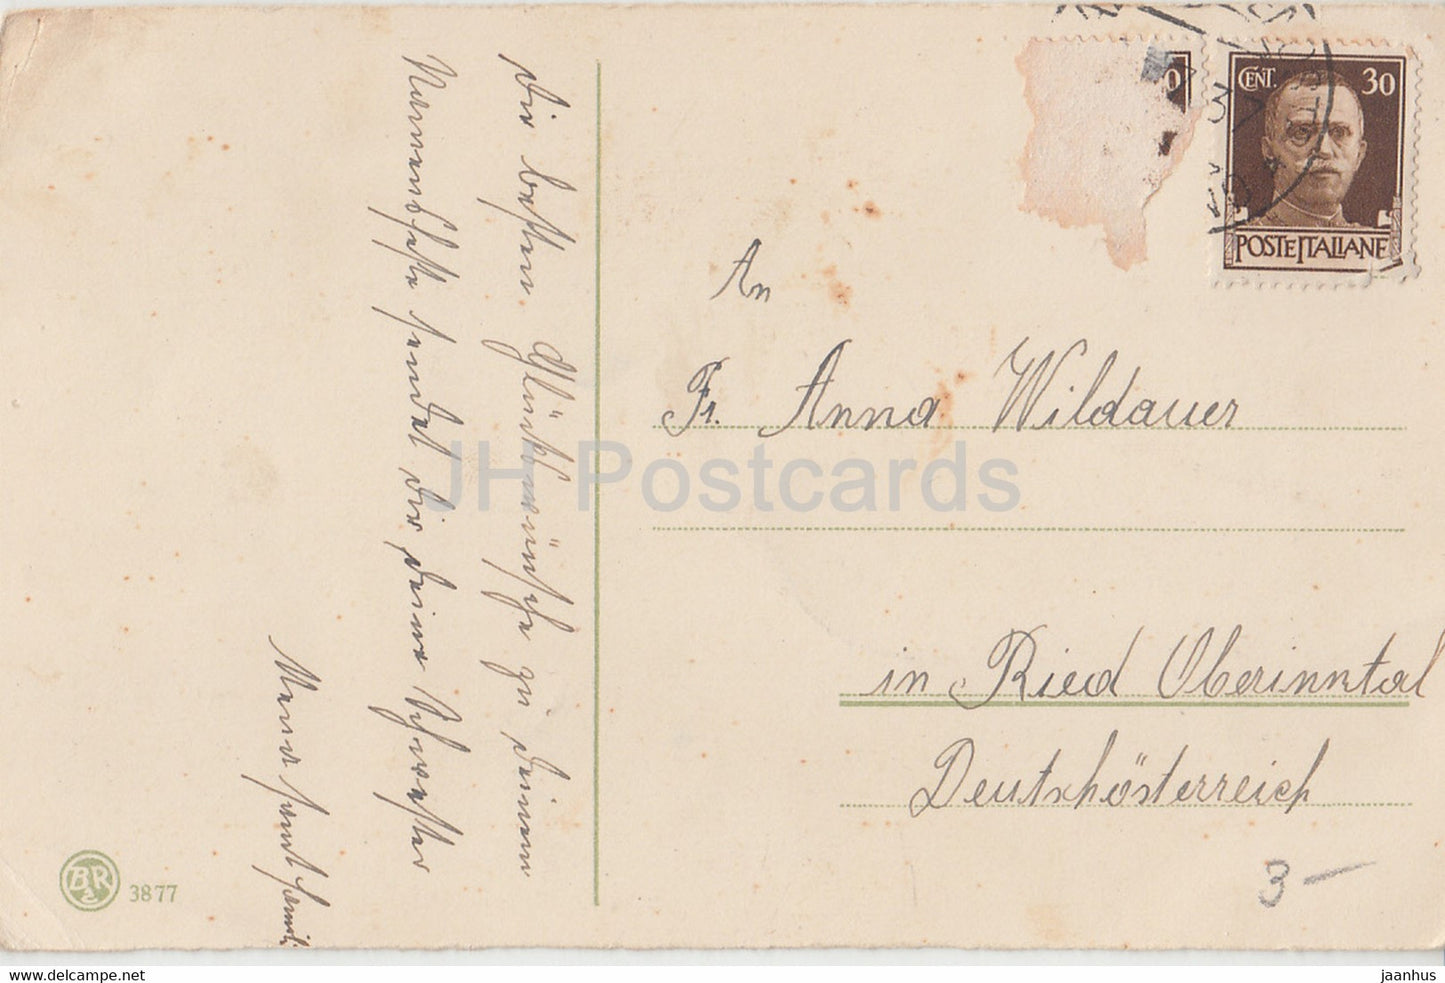 Die besten Glückwünsche zu deinem
Namensfeste sendet dir deine Schwester
samt Famili
CENT. 30
POSTE ITALIANE
0
An
Fr. Anna Wildauer
in Ried Oberinntal
Deutschösterreich
3 —
BR
3877
JH Postcards
www.delcampe.net
jaanhus